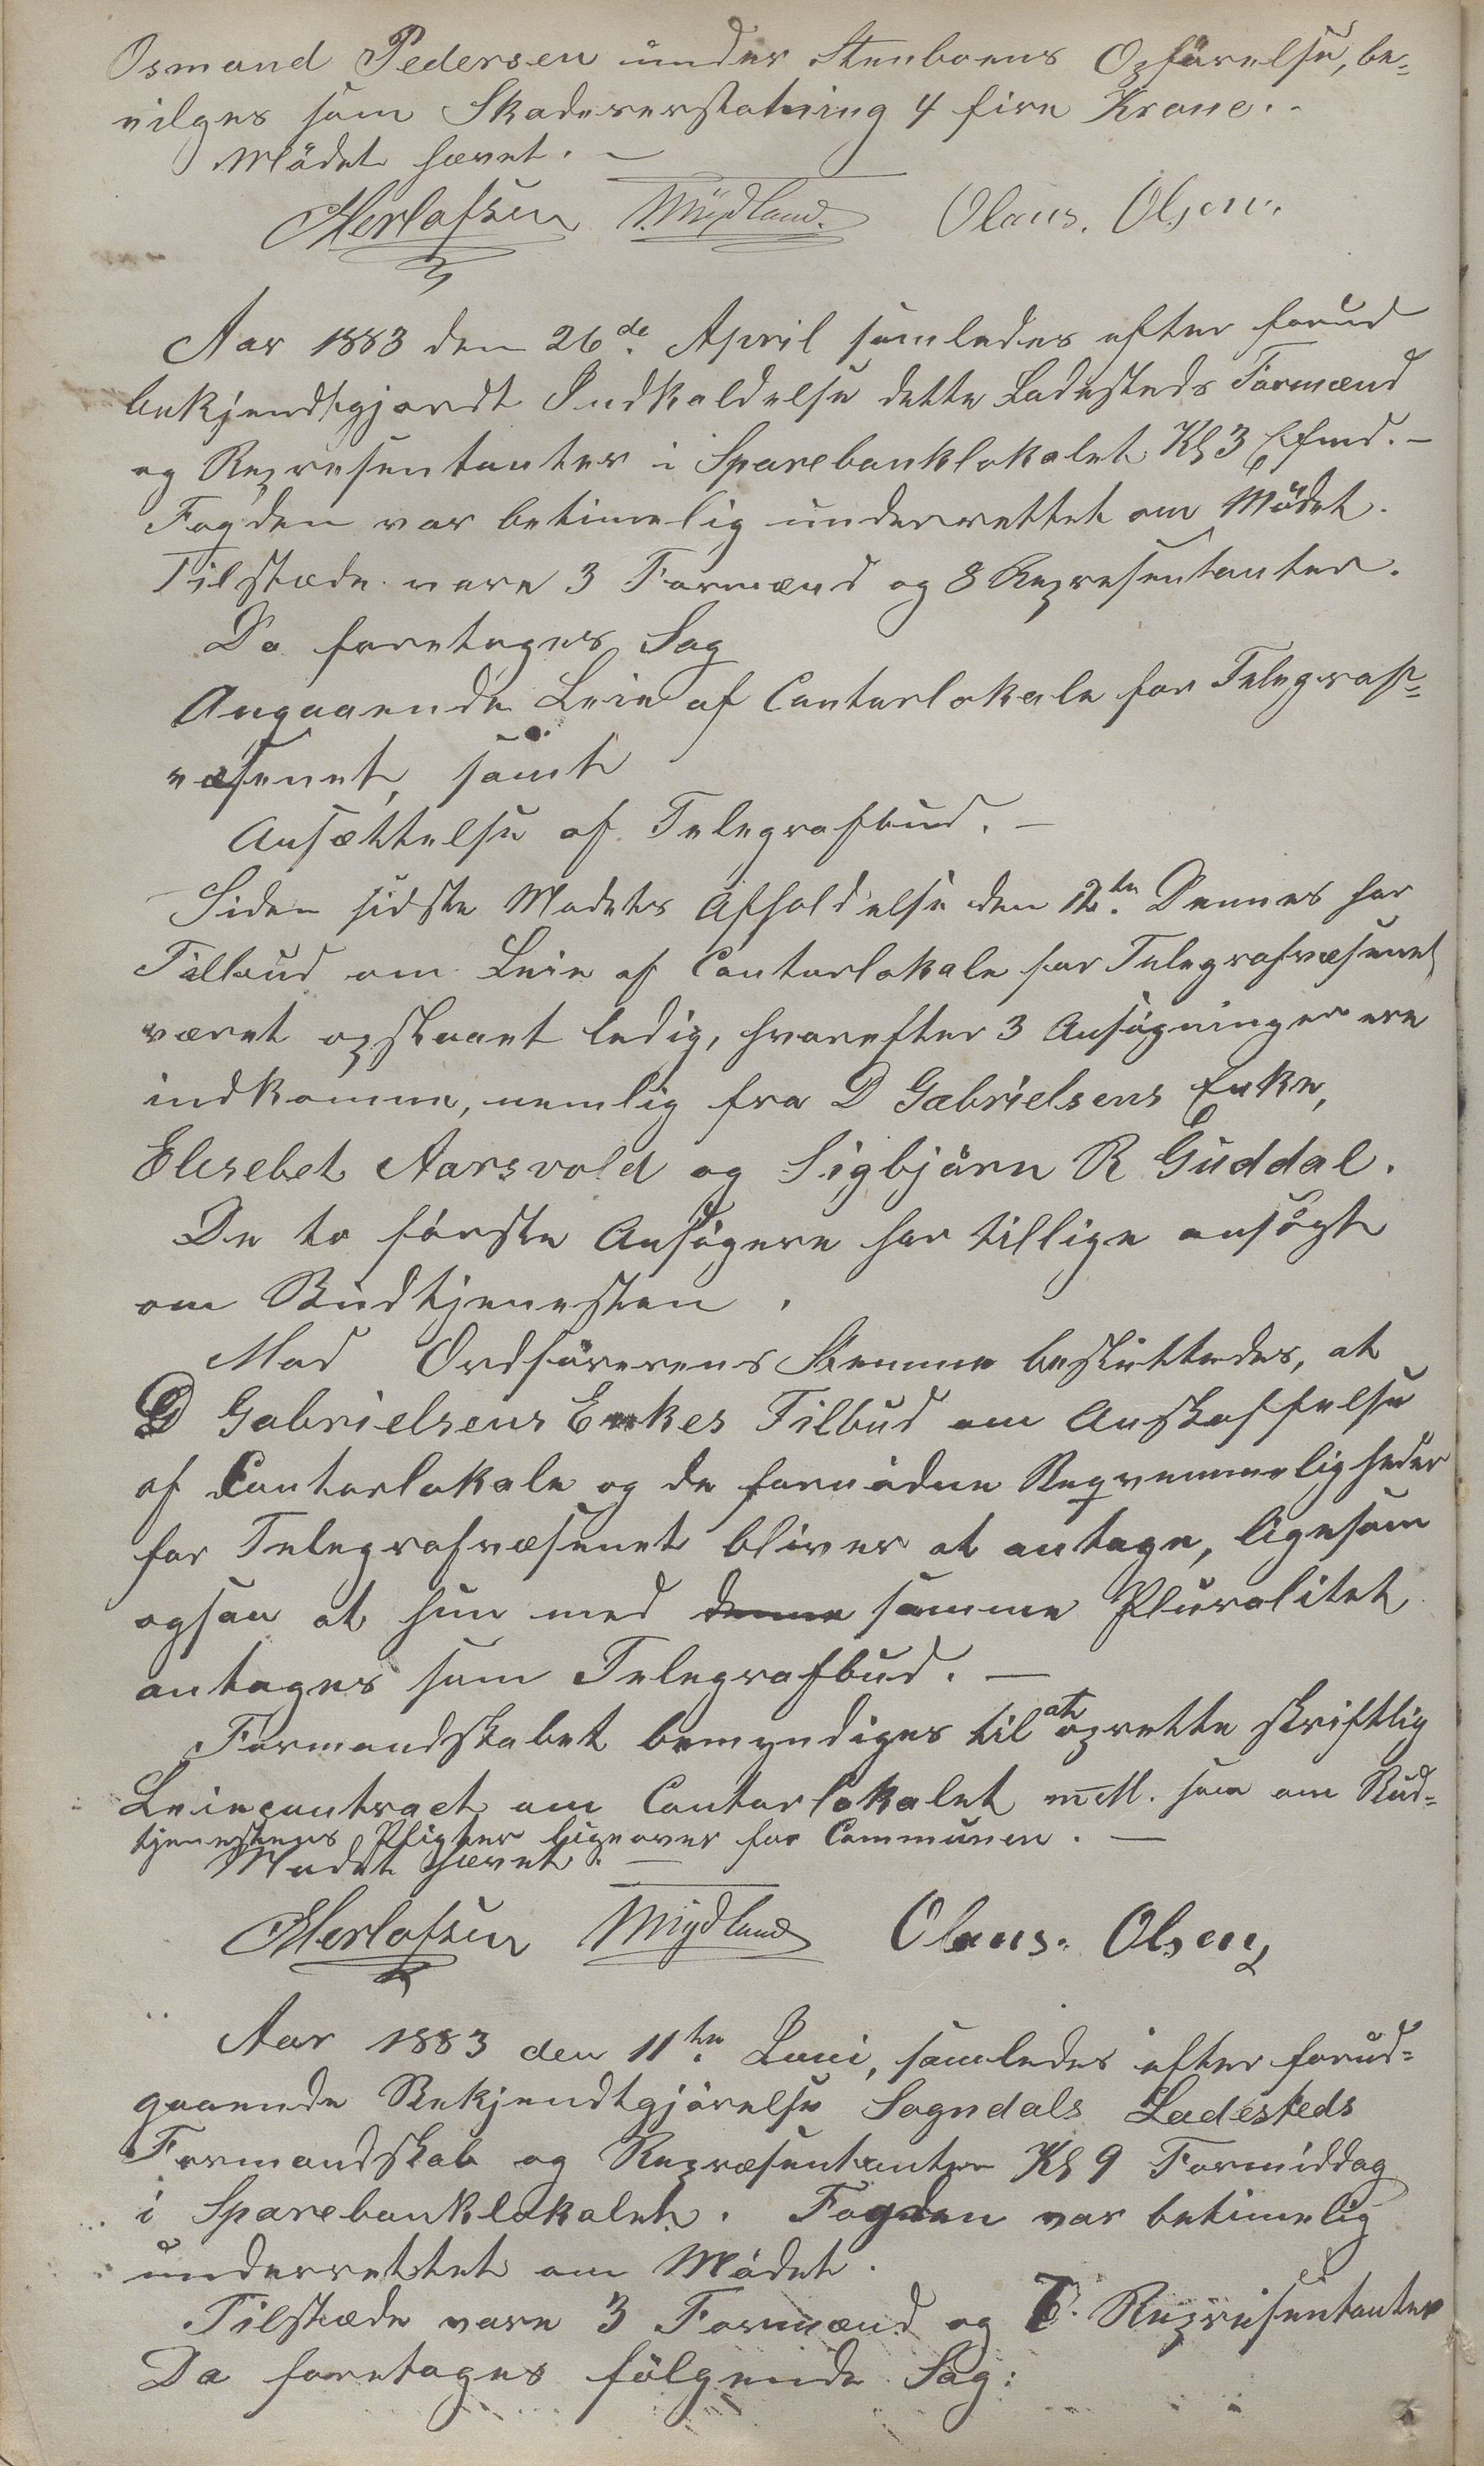 Osmund Pedersen under Stenboens Opførelse, be-
vilges som Skadeserstatning 4 fire Krone. -
Mødet hævet. -
Herlofsen Mydland. Olaus. Olsen.
Aar 1883 den 26de April samledes efter forud
bekjendtgjordt Indkaldelse dette Ladesteds Formænd
og Representanter i Sparebanklokalet Kl 3 Efmd. -
Fogden var betimelig underrettet om Mødet.
Tilstæde vare 3 Formænd og 8 Representanter.
Da foretages Sag
Angaaende Leie af Contorlokale for Telegraf-
væsenet, samt
Ansættelse af Telegrafbud. -
Siden sidste Mødets Afholdelse den 12te Dennes har
Tilbud om Leie af Contorlokale for Telegrafvæsenet
været opslaaet ledig, hvorefter 3 Ansøgninger ere
indkomne, nemlig fra D Gabrielsens Enke,
Elisebet Aarsvold og Sigbjørn R Guddal.
De to første Ansøgere har tillige ansøgt
om Budtjenesten.
Mod Ordførerens Stemme besluttedes, at
D Gabrielsens Enkes Tilbud om Anskaffelse
af Contorlokale og de fornødne Beqvemmeligheder
for Telegrafvæsenet bliver at antage, ligesom
ogsaa at hun med denne samme Pluralitet
antages som Telegrafbud. -
Formandskabet bemyndiges til at oprette skriftlig
Leiecontract om Contorlokalet m.M. som om Bud-
tjenestens Pligter ligeover for Communen. -
Mødet hævet. -
Herlofsen Mydland Olaus. Olsen
Aar 1883 den 11te Juni, samledes efter forud-
gaaende Bekjendtgjørelse Sogndals Ladesteds
Formandskab og Repræsentanter Kl 9 Formiddag
i Sparebanklokalet. Fogden var betimelig
underrettet om Mødet.
Tilstæde vare 3 Formænd og 7. Representanter
Da foretages følgende Sag: